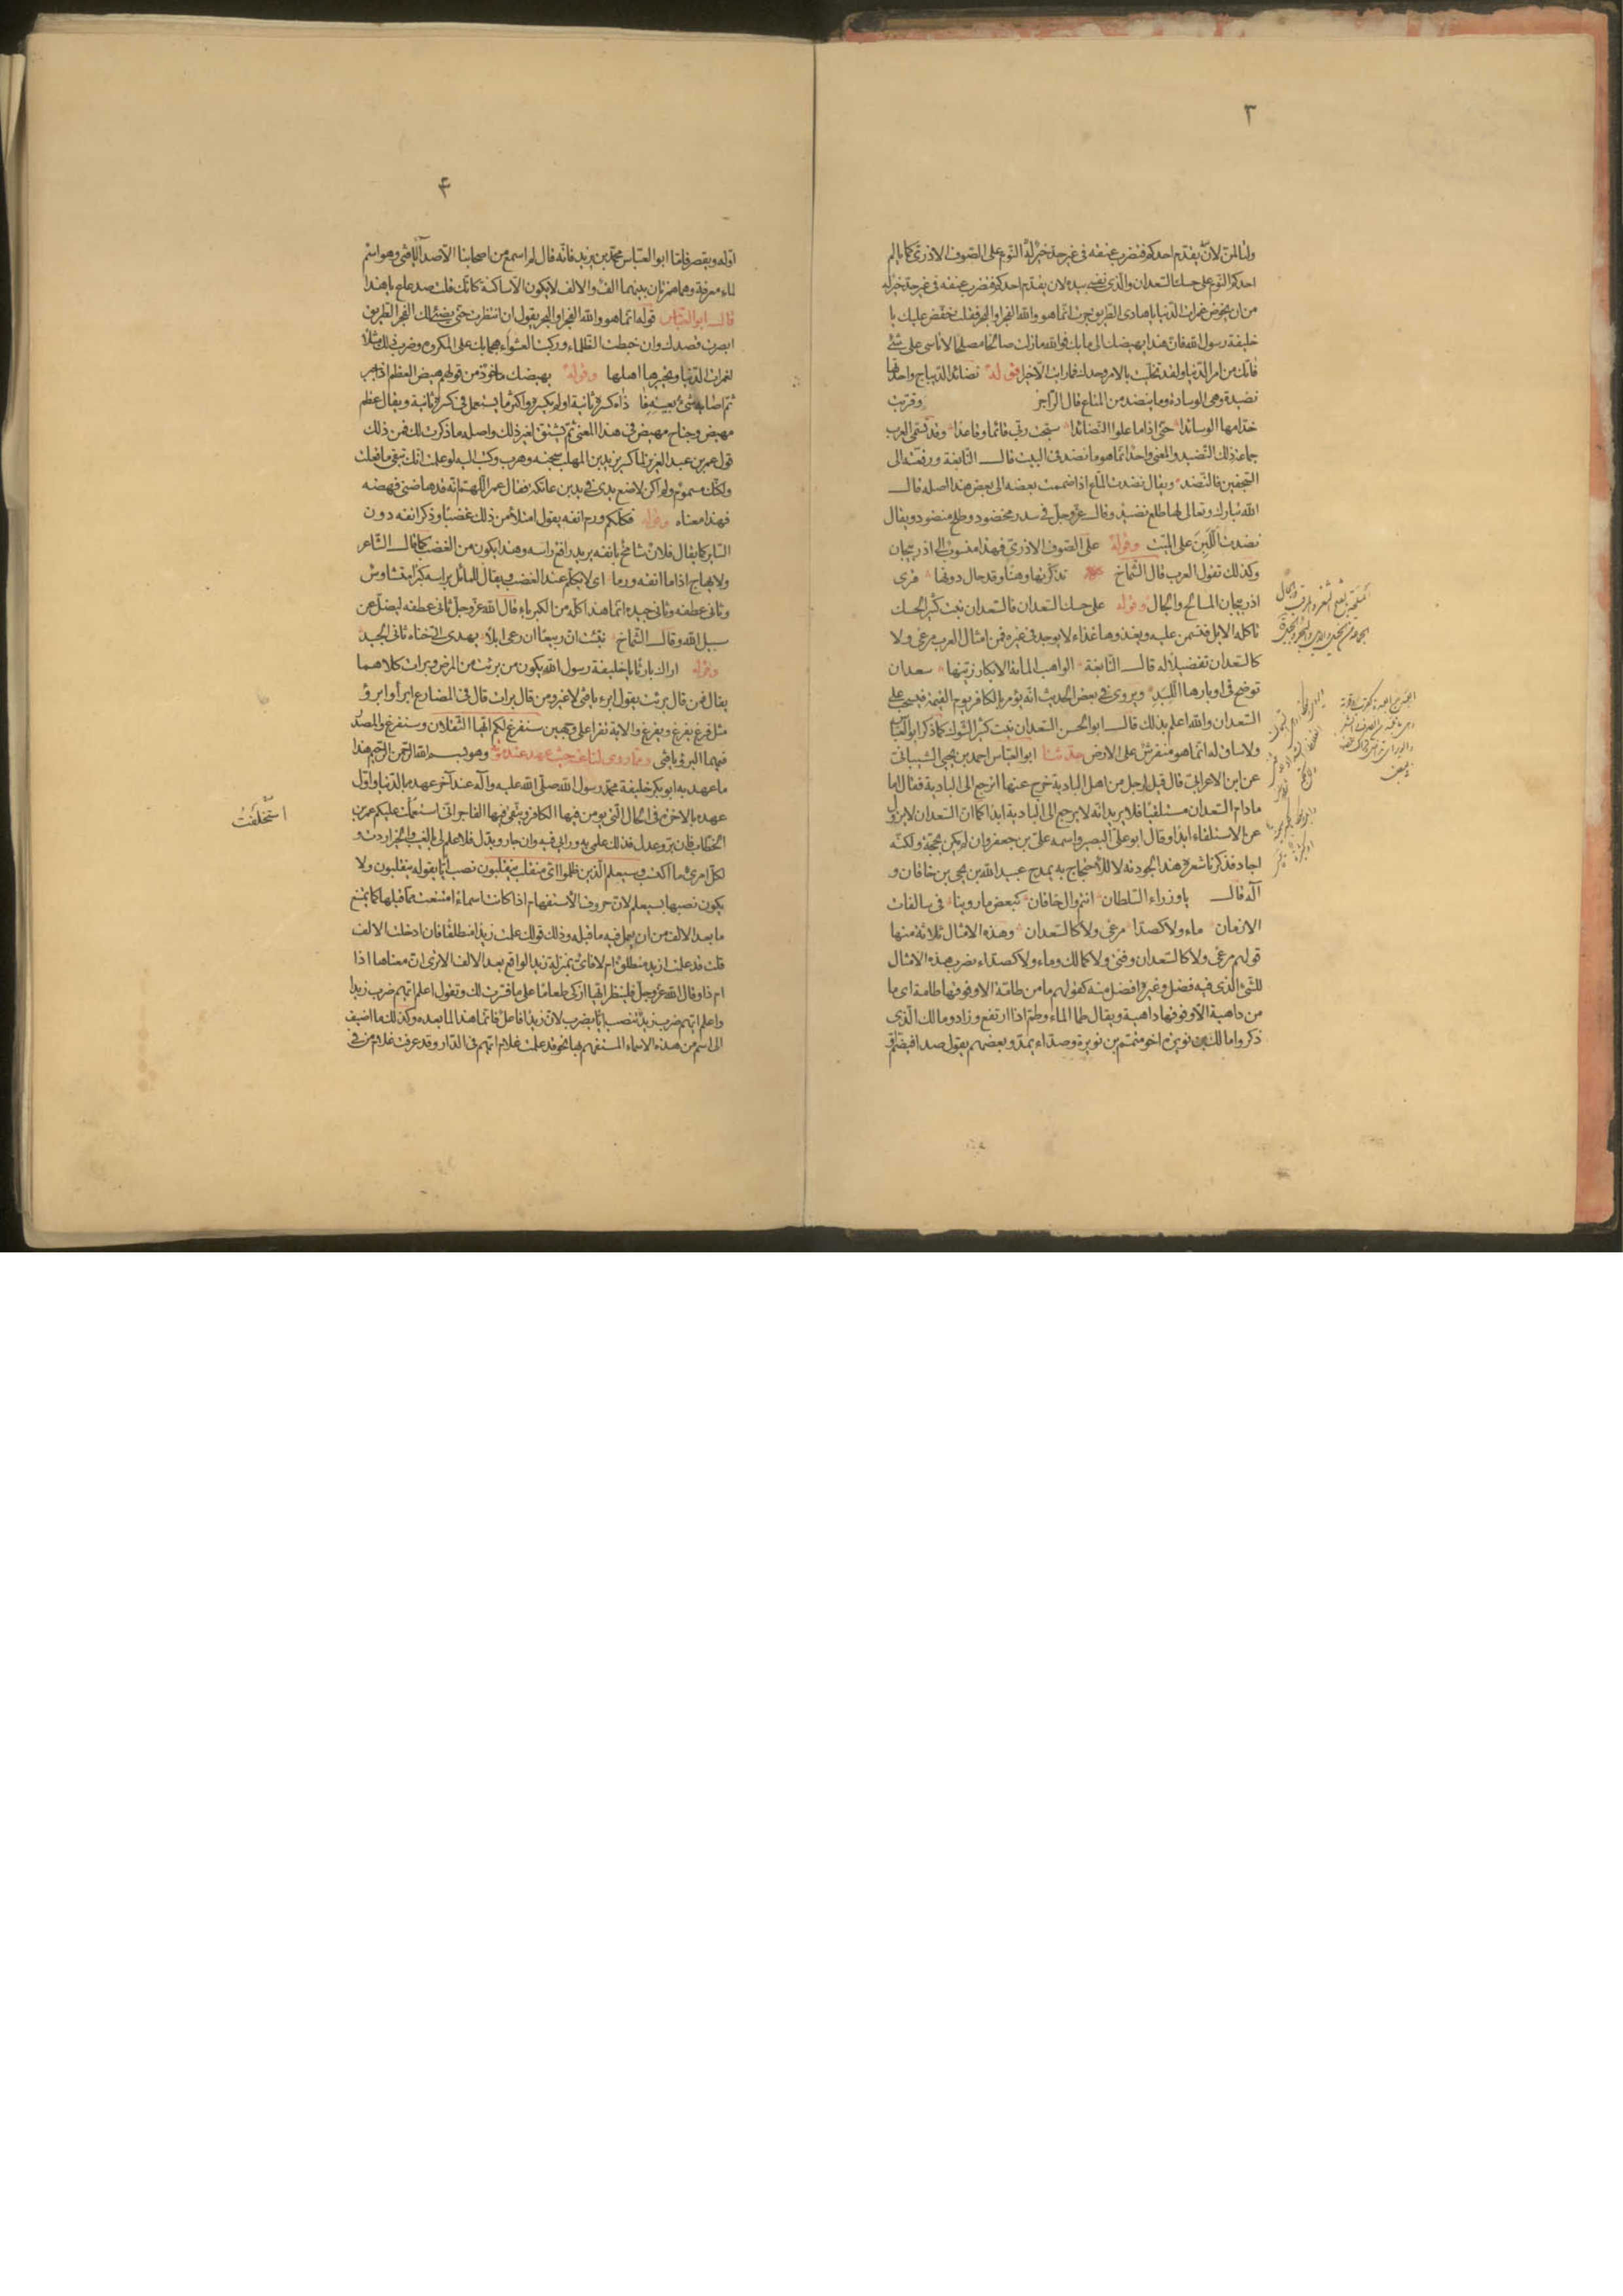 ٣
ولتألمن لأن يقدم احدكم فتضرب عنقه فى غير حد خير له النوم على الصوف الاذرى كما يألم
احدكم النوم على حسك السعدان والذى نفسى بيده لان يقدم احدكم فتضرب عنقه فى غير حد خير له
من ان يخوض غمرات الدنيا يا هادى الطريق جرت انما هو والله الفجر او البجر فقلت خفض عليك يا
خليفة رسول الله فان هذا يهيضك الى ما بك فوالله ما زلت صالحا مصلحا لا تأسى على شئ
فاتك من امر الدنيا ولقد تخليت بالامر وحدك فما رايت الا خيرا قوله نضائد الديباج واحدتها
نضيدة وهى الوسادة وما ينضد من المتاع قال الراجز وقربت
خدامها الوسائدا حتى اذا ما علوا النضائدا سبحت ربى قائما وقاعدا وقد تسمى العرب
جماعة ذلك النضد والمعنى واحد انما هو ما نضد فى البيت قال النابغة ورفعته الى
السجفين فالنضد ويقال نضدت المتاع اذا ضممت بعضه الى بعض هذا اصله قال
الله تبارك وتعالى لها طلع نضيد وقال عز وجل فى سدر مخضود وطلح منضود ويقال
نضدت اللبن على الميت وقوله على الصوف الاذرى فهذا منسوب الى اذربيجان
وكذلك تقول العرب قال الشماخ تذكرتها وهنا وقد حال دونها قرى
اذربيجان المسالح والجال وقوله على حسك السعدان فالسعدان نبت كثير الحسك
تأكله الابل فتسمن عليه ويغذوها غذاء لا يوجد فى غيره فمن امثال العرب مرعى ولا
كالسعدان تفضيلا له قال النابغة الواهب المائة الابكار زينها سعدان
توضح فى اوبارها اللبد ويروى فى بعض الحديث انه يؤمر بالكافر يوم القيمة فيسحب على
السعدان والله اعلم بذلك قال ابو الحسن السعدان نبت كثير الشوك كما ذكر ابو العباس
ولا ساق له انما هو منفرش على الارض حدثنا ابو العباس احمد بن يحيى الشيبانى
عن ابن الاعرابى قال قيل لرجل من اهل البادية خرج عنها اترجع الى البادية فقال اما
ما دام السعدان مستلقيا فلا يريد انه لا يرجع الى البادية ابدا كما ان السعدان لا يزول
عن الاستلقاء ابدا وقال ابو على البصير واسمه على بن جعفر وان لم يكن بحجة ولكنه
اجاد فذكرنا شعره هذا لجودته لا للاحتجاج به يمدح عبيد الله بن يحيى بن خاقان و
آله فقال يا وزراء السلطان انتم وآل خاقان كبعض ما روينا فى سالفات
الازمان ماء ولا كصدا مرعى ولا كالسعدان وهذه الامثال ثلاثة منها
قولهم مرعى ولا كالسعدان وفتى ولا كمالك وماء ولا كصداء يضرب هذه الامثال
للشئ الذى فيه فضل وغيره افضل منه كقولهم ما من طامة الا وفوقها طامة اى ما
من داهية الا وفوقها داهية ويقال طما الماء وطم اذا ارتفع وزاد ومالك الذى
ذكروا مالك بن نويرة اخو متمم بن نويرة وصداء يمد وبعضهم يقول صدا فيضم
٤
اوله ويقصر فاما ابو العباس محمد بن يزيد فانه قال لم اسمع من اصحابنا الا صدآء يا فتى وهو اسم
لماء معرفة وهما همزتان بينهما الف والالف لا يكون الا ساكنة كانك قلت صدعاع يا هذا
قال ابو العباس قوله انما هو والله الفجر او البجر يقول ان انتظرت حتى يضئ لك الفجر الطريق
ابصرت قصدك وان خبطت الظلماء وركبت العشواء هجما بك على المكروه وضرب ذلك مثلا
لغمرات الدنيا وتحييرها اهلها وقوله يهيضك ماخوذ من قولهم هيض العظم اذا جبر
ثم اصابه شئ يعنته فاذاه كسره ثانية اوله يكسره واكثر ما يستعمل فى كسره ثانية ويقال عظم
مهيض وجناح مهيض فى هذا المعنى ثم يشتق لغير ذلك واصله ما ذكرت لك فمن ذلك
قول عمر بن عبد العزيز لما كسر يزيد بن المهلب سجنه وهرب وكتب اليه لو علمت انك تبقى ما فعلت
ولكنك مسموم ولم اكن لاضع يدى فى يد ابن عاتكة فقال عمر اللهم انه قد هاضنى فهضه
فهذا معناه وقوله فكلكم ورم انفه يقول امتلأ من ذلك غضبا وذكر انفه دون
السائر كما يقال فلان شامخ بانفه يريد رافع راسه وهذا يكون من الغضب كما قال الشاعر
ولا يهاج اذا ما انفه ورما اى لا يكلم عند الغضب ويقال للمائل براسه كبرا متشاوس
وثانى عطفه وثانى جيده انما هذا كله من الكبرياء قال الله عز وجل ثانى عطفه ليضل عن
سبيل الله وقال الشماخ نبئت ان ربيعا ان رعى ابلا يهدى الى خناه ثانى الجيد
وقوله اراك بارئا يا خليفة رسول الله يكون من برئت من المرض وبرات كلاهما
يقال فمن قال برئت يقول ابرء يا فتى لا غير ومن قال برات قال فى المضارع ابرأ وابرؤ
مثل فرغ يفرغ ويفرغ والاية تقرا على وجهين سنفرغ لكم ايها الثقلان وسنفرغ والمصدر
فيهما البرء يا فتى ومما روى لنا عنه حيث عهد عند موته وهو بسم الله الرحمن الرحيم هذا
ما عهد به ابو بكر خليفة محمد رسول الله صلى الله عليه وآله عند آخر عهده بالدنيا واول
عهده بالاخرة فى الحال التى يؤمن فيها الكافر ويتقى فيها الفاجر انى استعملت عليكم عمر بن
الخطاب فان بر وعدل فذلك علمى به ورائى فيه وان جار وبدل فلا علم لى بالغيب والخير اردت و
لكل امرئ ما اكتسب وسيعلم الذين ظلموا اى منقلب ينقلبون نصب ايا بقوله ينقلبون ولا
يكون نصبها بسيعلم لان حروف الاستفهام اذا كانت اسماء امتنعت مما قبلها كما يمتنع
ما بعد الالف من ان يعمل فيه ما قبله وذلك قولك علمت زيدا منطلقا فان ادخلت الالف
قلت قد علمت ازيد منطلق ام لا فاى بمنزلة زيد الواقع بعد الالف الا ترى ان معناها اذا
ام ذا وقال الله عز وجل فلينظر ايها ازكى طعاما على ما فسرت لك وتقول اعلم ايهم ضرب زيدا
واعلم ايهم ضرب زيد تنصب ايا بضرب لان زيدا فاعل فانما هذا لما بعده وكذلك ما اضيف
الى اسم من هذه الاسماء المستفهم بها نحو قد علمت غلام ايهم فى الدار وقد عرفت غلام من فى
استخلفت